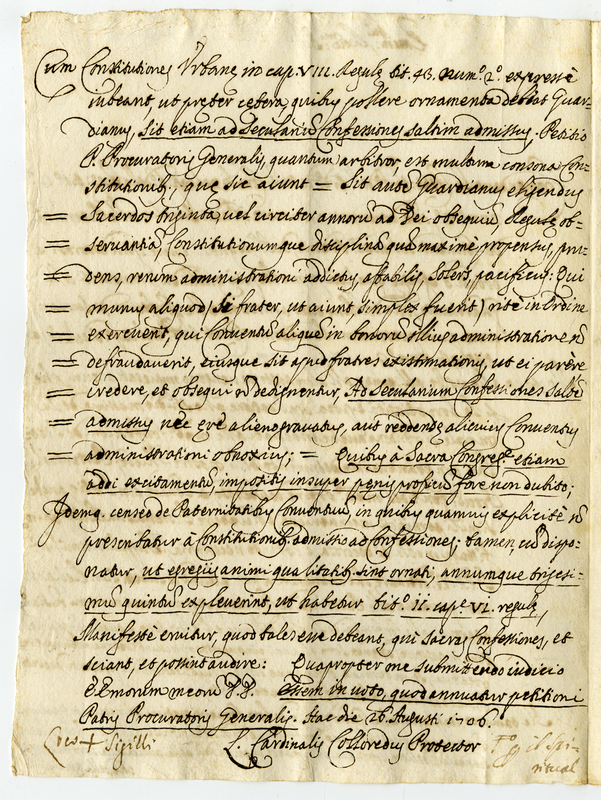 Cum Constitutiones Urbanę in cap. VIII. Regulę tit. 43. num.º 2.º expressè
iubeant, ut pręter cętera quibus pollere ornamenta debeat Guar=
dianus, sit etiam ad Seculariũ Confessiones saltim admissus, Petitio
P. Procuratoris Generalis, quantum arbitror, est multum consona Con=
stitutionib., quę sic aiunt = Sit autẽ Guardianus eligendus
= Sacerdos triginta, vel circiter annorũ ad Dei obsequiũ, Regulę ob=
= servantiã, Constitutionumque disciplinã quã maximè propensus, pru=
= dens, rerum administrationi addictus, affabilis, solers, pacificus: Qui
= munus aliquod (si frater, ut aiunt simplex fuerit) ritè in Ordine
= exercuerit, qui Conventũ aliquẽ in bonorũ illius administratione nõ
= defraudaverit, eiusque sit apud fratres existimationis, ut ei parère
= credere, et obsequi nõ dedignentur, Ad Secularium Confessiones saltẽ
= admissus nèc ęre alieno gravatus, aut reddendę alicuius Conventus
= administrationi obnoxius; = Quibus à Sacra Congreg.e etiam
addi excitamentũ, impositis insuper pęnis proficuũ fore non dubito;
Idemq. censeo de Paternitatibus Conventuũ, in quibus quamvis explicitè nõ
presentatur à Constitutionib. admissio ad Confessiones; tamen, cũ dispo=
natur, ut egregius animi qualitatib. sint ornati, annumque trigesi=
mũ quintũ expleverint, ut habetur tit.º 11. cap.e VI. regulę,
Manifestè eruitur, quod tales esse debeant, qui Sacras Confessiones, et
sciant, et possint audire: Quapropter me submittendo iudicio
Emorum meorũ PP. Essem in voto, quod annuatur petitioni
Patris Procuratoris Generalis. Hac die 26. Augusti 1706.
Loco + Sigilli L. Cardinalis Colloredus Protector
ritual